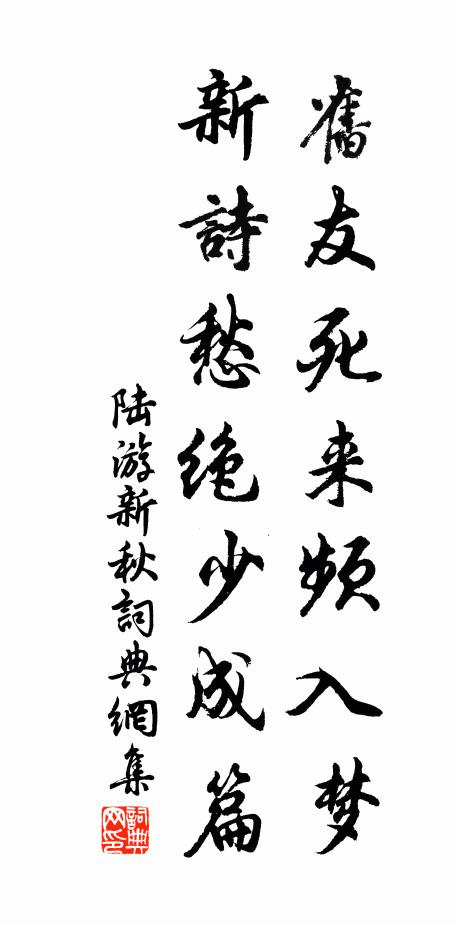 舊友死来頻入梦
新詩愁绝少成篇
陆游新秋詞典網集
詞典网印